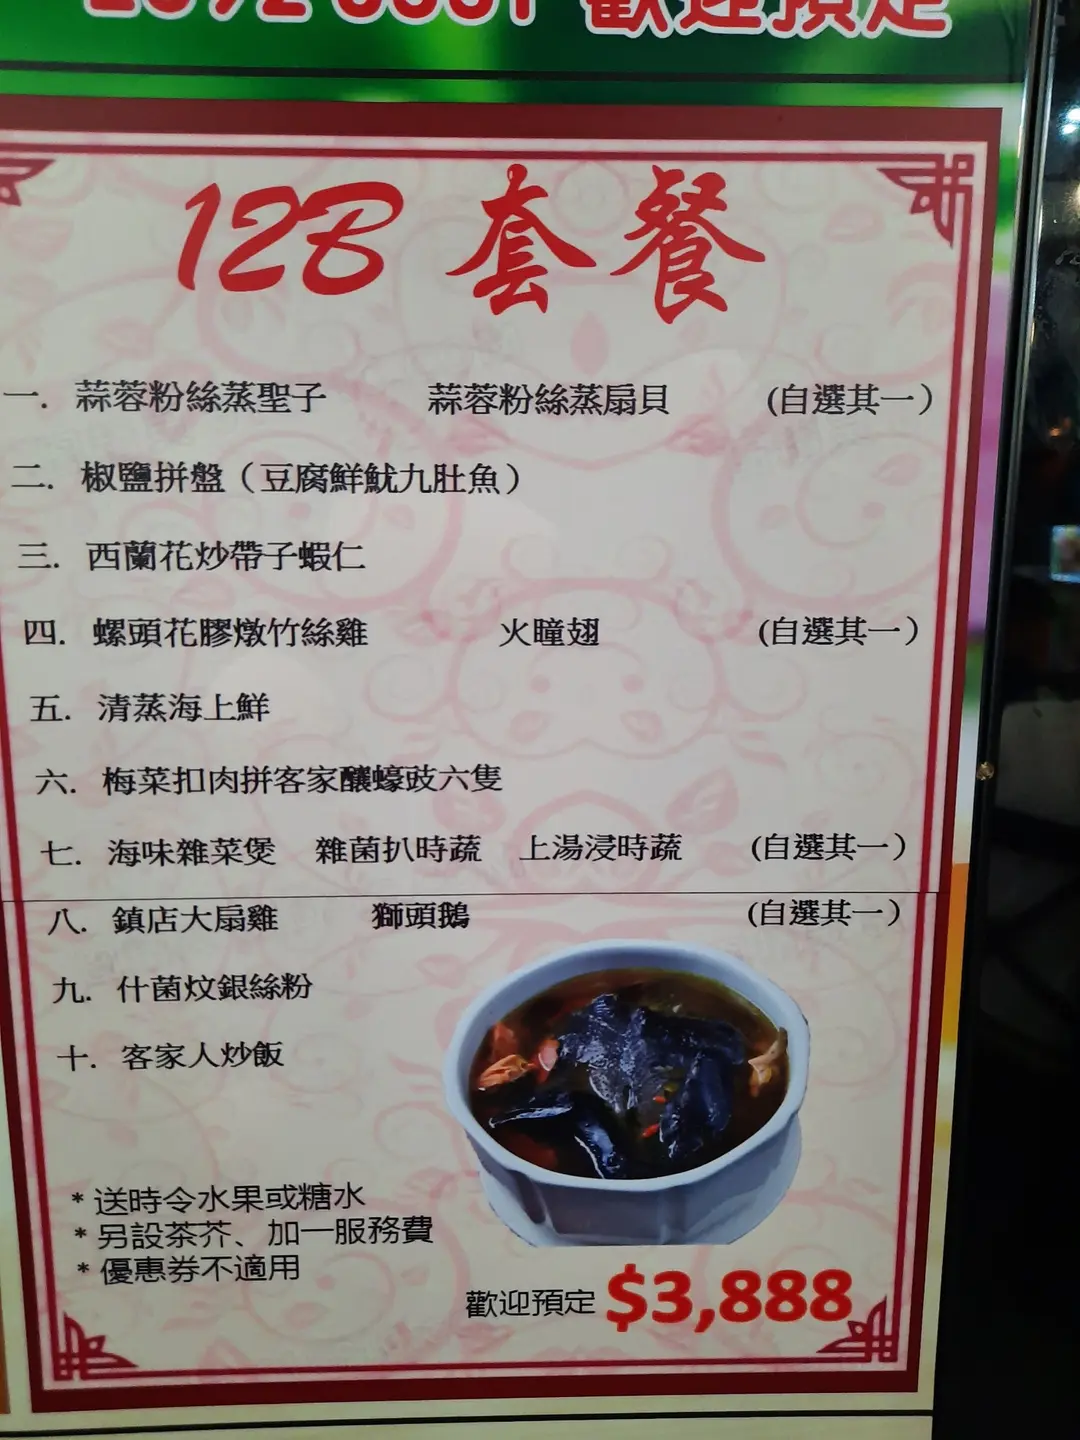 歡迎預定
12B 套餐
一. 蒜蓉粉絲蒸聖子 蒜蓉粉絲蒸扇貝 (自選其一)
二. 椒鹽拼盤（豆腐鮮魷九肚魚）
三. 西蘭花炒帶子蝦仁
四. 螺頭花膠燉竹絲雞 火瞳翅 (自選其一)
五. 清蒸海上鮮
六. 梅菜扣肉拼客家釀蠔豉六隻
七. 海味雜菜煲 雜菌扒時蔬 上湯浸時蔬 (自選其一)
八. 鎮店大扇雞 獅頭鵝 (自選其一)
九. 什菌炆銀絲粉
十. 客家人炒飯
* 送時令水果或糖水
* 另設茶芥、加一服務費
* 優惠券不適用
歡迎預定 $3,888